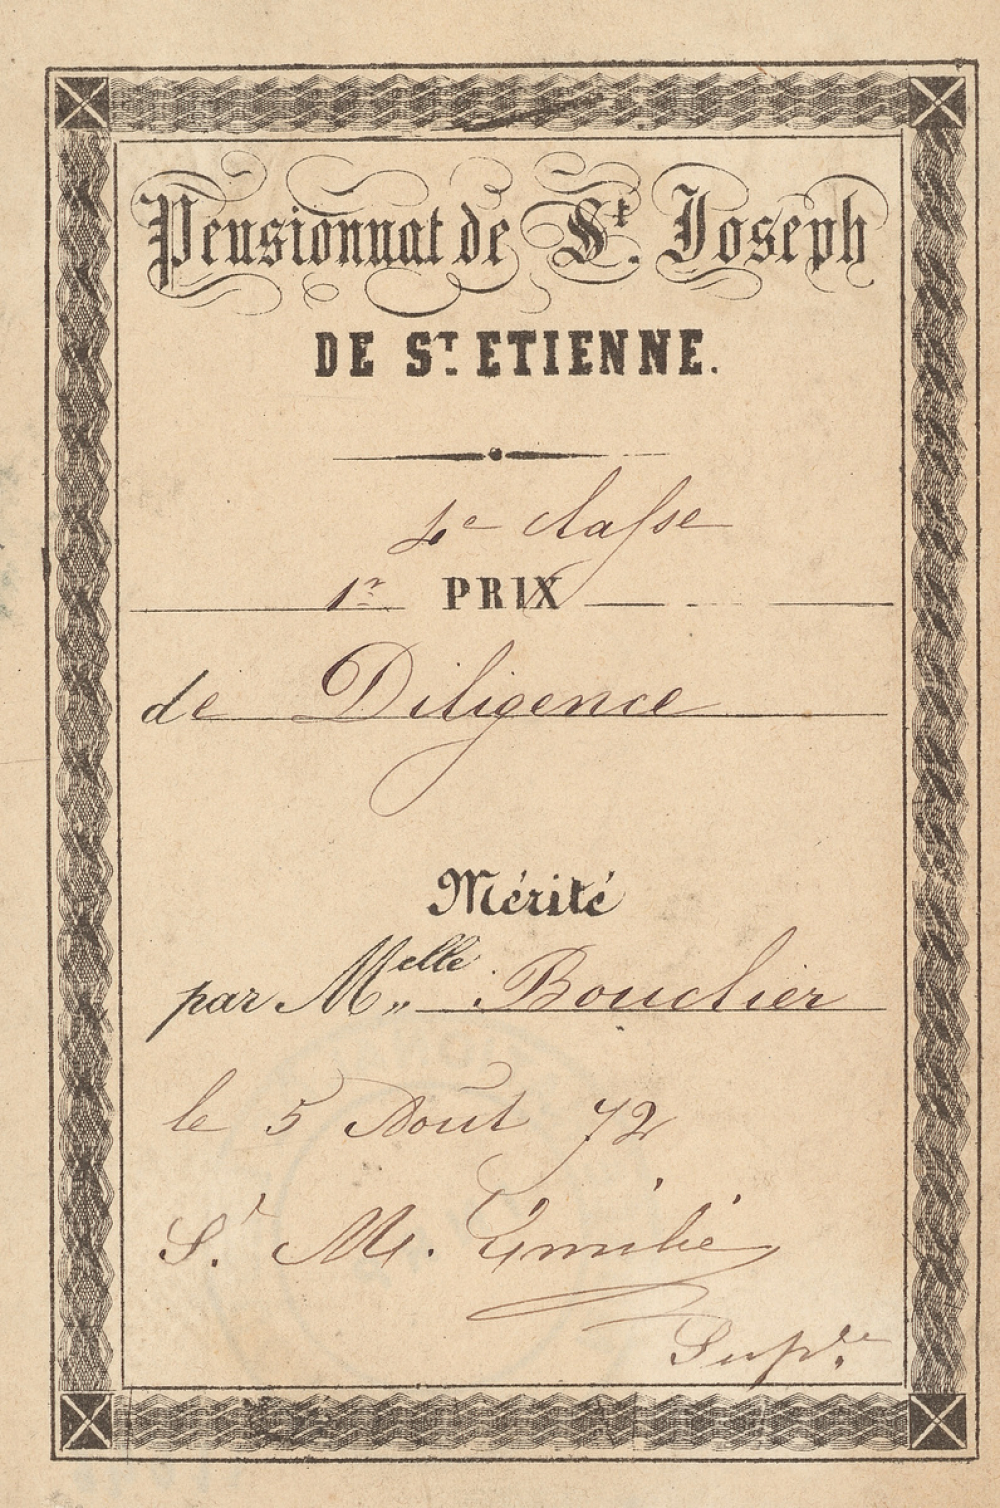 Pensionnat de St. Joseph
DE ST. ETIENNE.
4e classe
1r PRIX
de Diligence
Mérité
par Melle Bouchier
le 5 Août 72
Sr. M. Émilie
Supre.